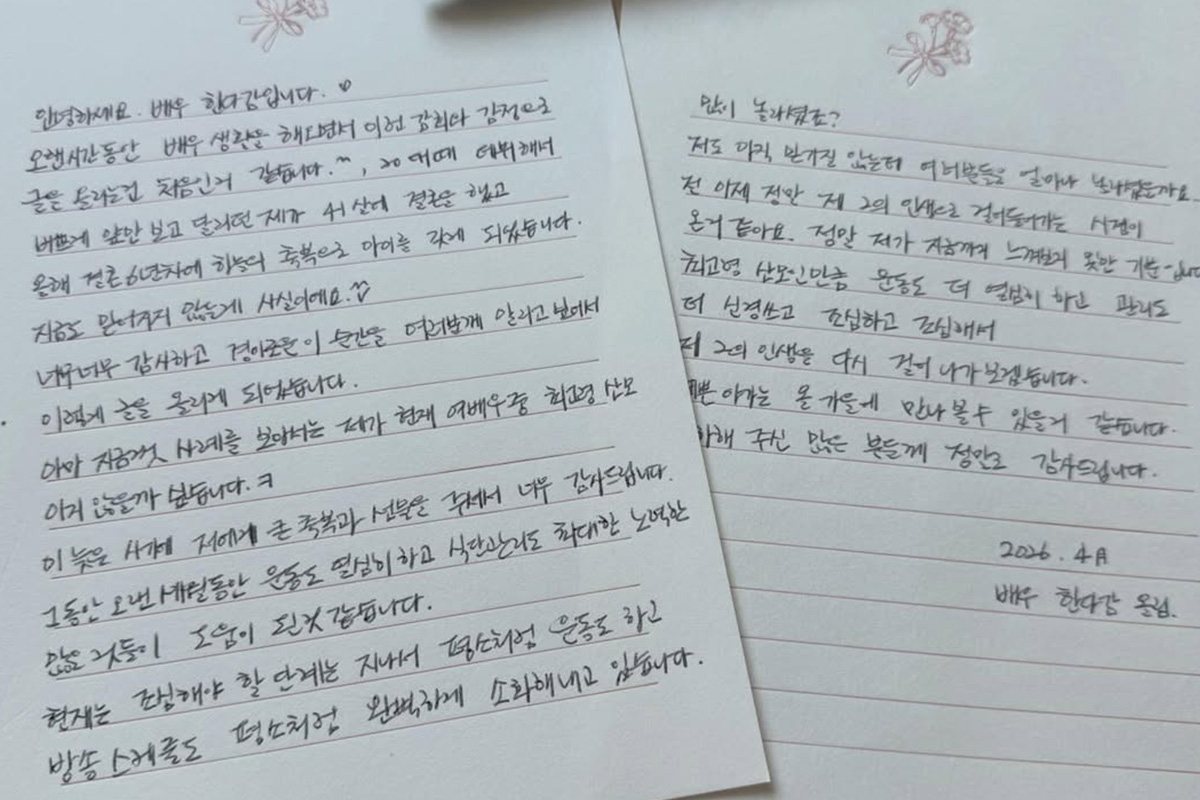 안녕하세요. 배우 한다감입니다. ♡
오랜시간동안 배우 생활을 해오면서 이런 감회와 감정으로
글을 올리는건 처음인거 같습니다.^^, 20대때 데뷔해서
바쁘게 앞만보고 달리던 제가 41살에 결혼을 했고
올해 결혼 6년차에 하늘의 축복으로 아이를 갖게 되었습니다.
지금도 믿어지지 않는게 사실이에요.
너무너무 감사하고 경이로운 이 순간을 여러분께 알리고 보여서
이렇게 글을 올리게 되었습니다.
아마 지금껏 사례를 보아서는 제가 현재 여배우중 최고령 산모
아지 않을까 싶습니다.ㅋ
이 늦은 시기에 저에게 큰 축복과 선물을 주셔서 너무 감사드립니다.
그동안 오랜세월동안 운동도 열심히 하고 식단관리도 최대한 노력한
많은 것들이 도움이 된것 같습니다.
현재는 조심해야 할 단계는 지나서 평소처럼 운동도 하고
방송 스케줄도 평소처럼 완벽하게 소화해내고 있습니다.
많이 놀라셨죠?
저도 아직 믿기질 않는데 여러분들은 얼마나 놀라셨을까요
전 이제 정말 제 2의 인생으로 걸어들어가는 시점이
온거 같아요. 정말 제가 지금까지 느껴보지 못한 기분
최고령 산모인만큼 운동도 더 열심히 하고 관리도
더 신경쓰고 조심하고 조심해서
제 2의 인생을 다시 걸어 나가보겠습니다.
아가는 올 가을에 만나볼수 있을거 같습니다.
하해 주신 많은 분들께 정말로 감사드립니다.
2026. 4月
배우 한다감 올림.